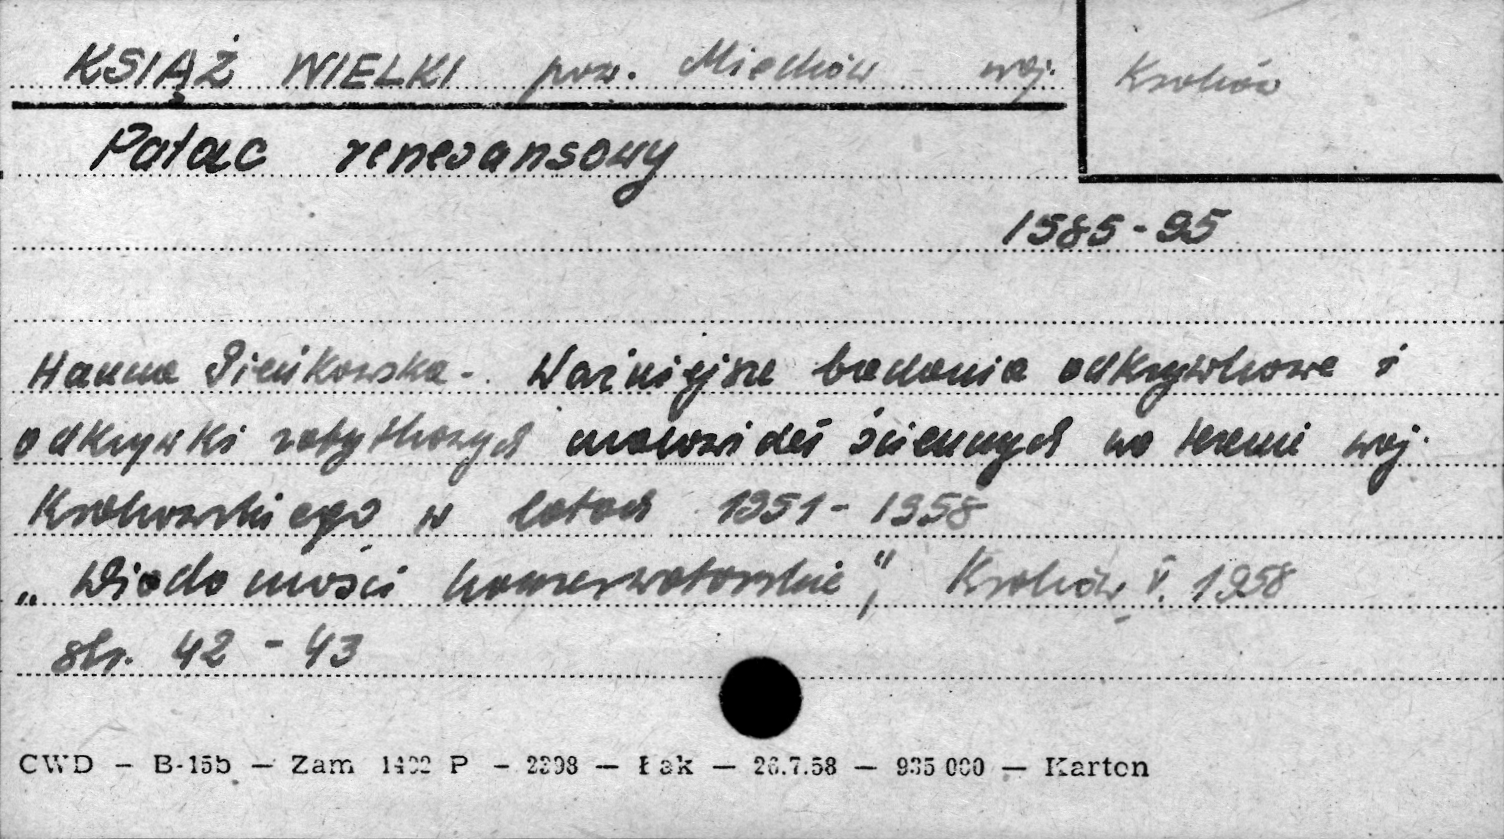 KSIĄŻ WIELKI pow. Miechów woj. Kraków
Pałac renesansowy
1585-95
Hanna Pieńkowska. Ważniejsze badania odkrywkowe i
odkrywki zabytkowych malowideł ściennych na terenie woj.
Krakowskiego w latach 1951-1958
„Wiadomości konserwatorskie", Kraków V. 1958
str. 42-43
CWD — B-15b — Zam 1402 P — 2398 — Łak — 26.7.58 — 935 000 — Karton